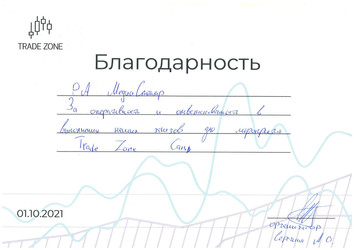 TRADE ZONE
Благодарность
РА МедиаСтайлер
За оперативность и ответственность в
выполнении наших заказов для мероприятия
Trade Zone Самр
01.10.2021
организатор